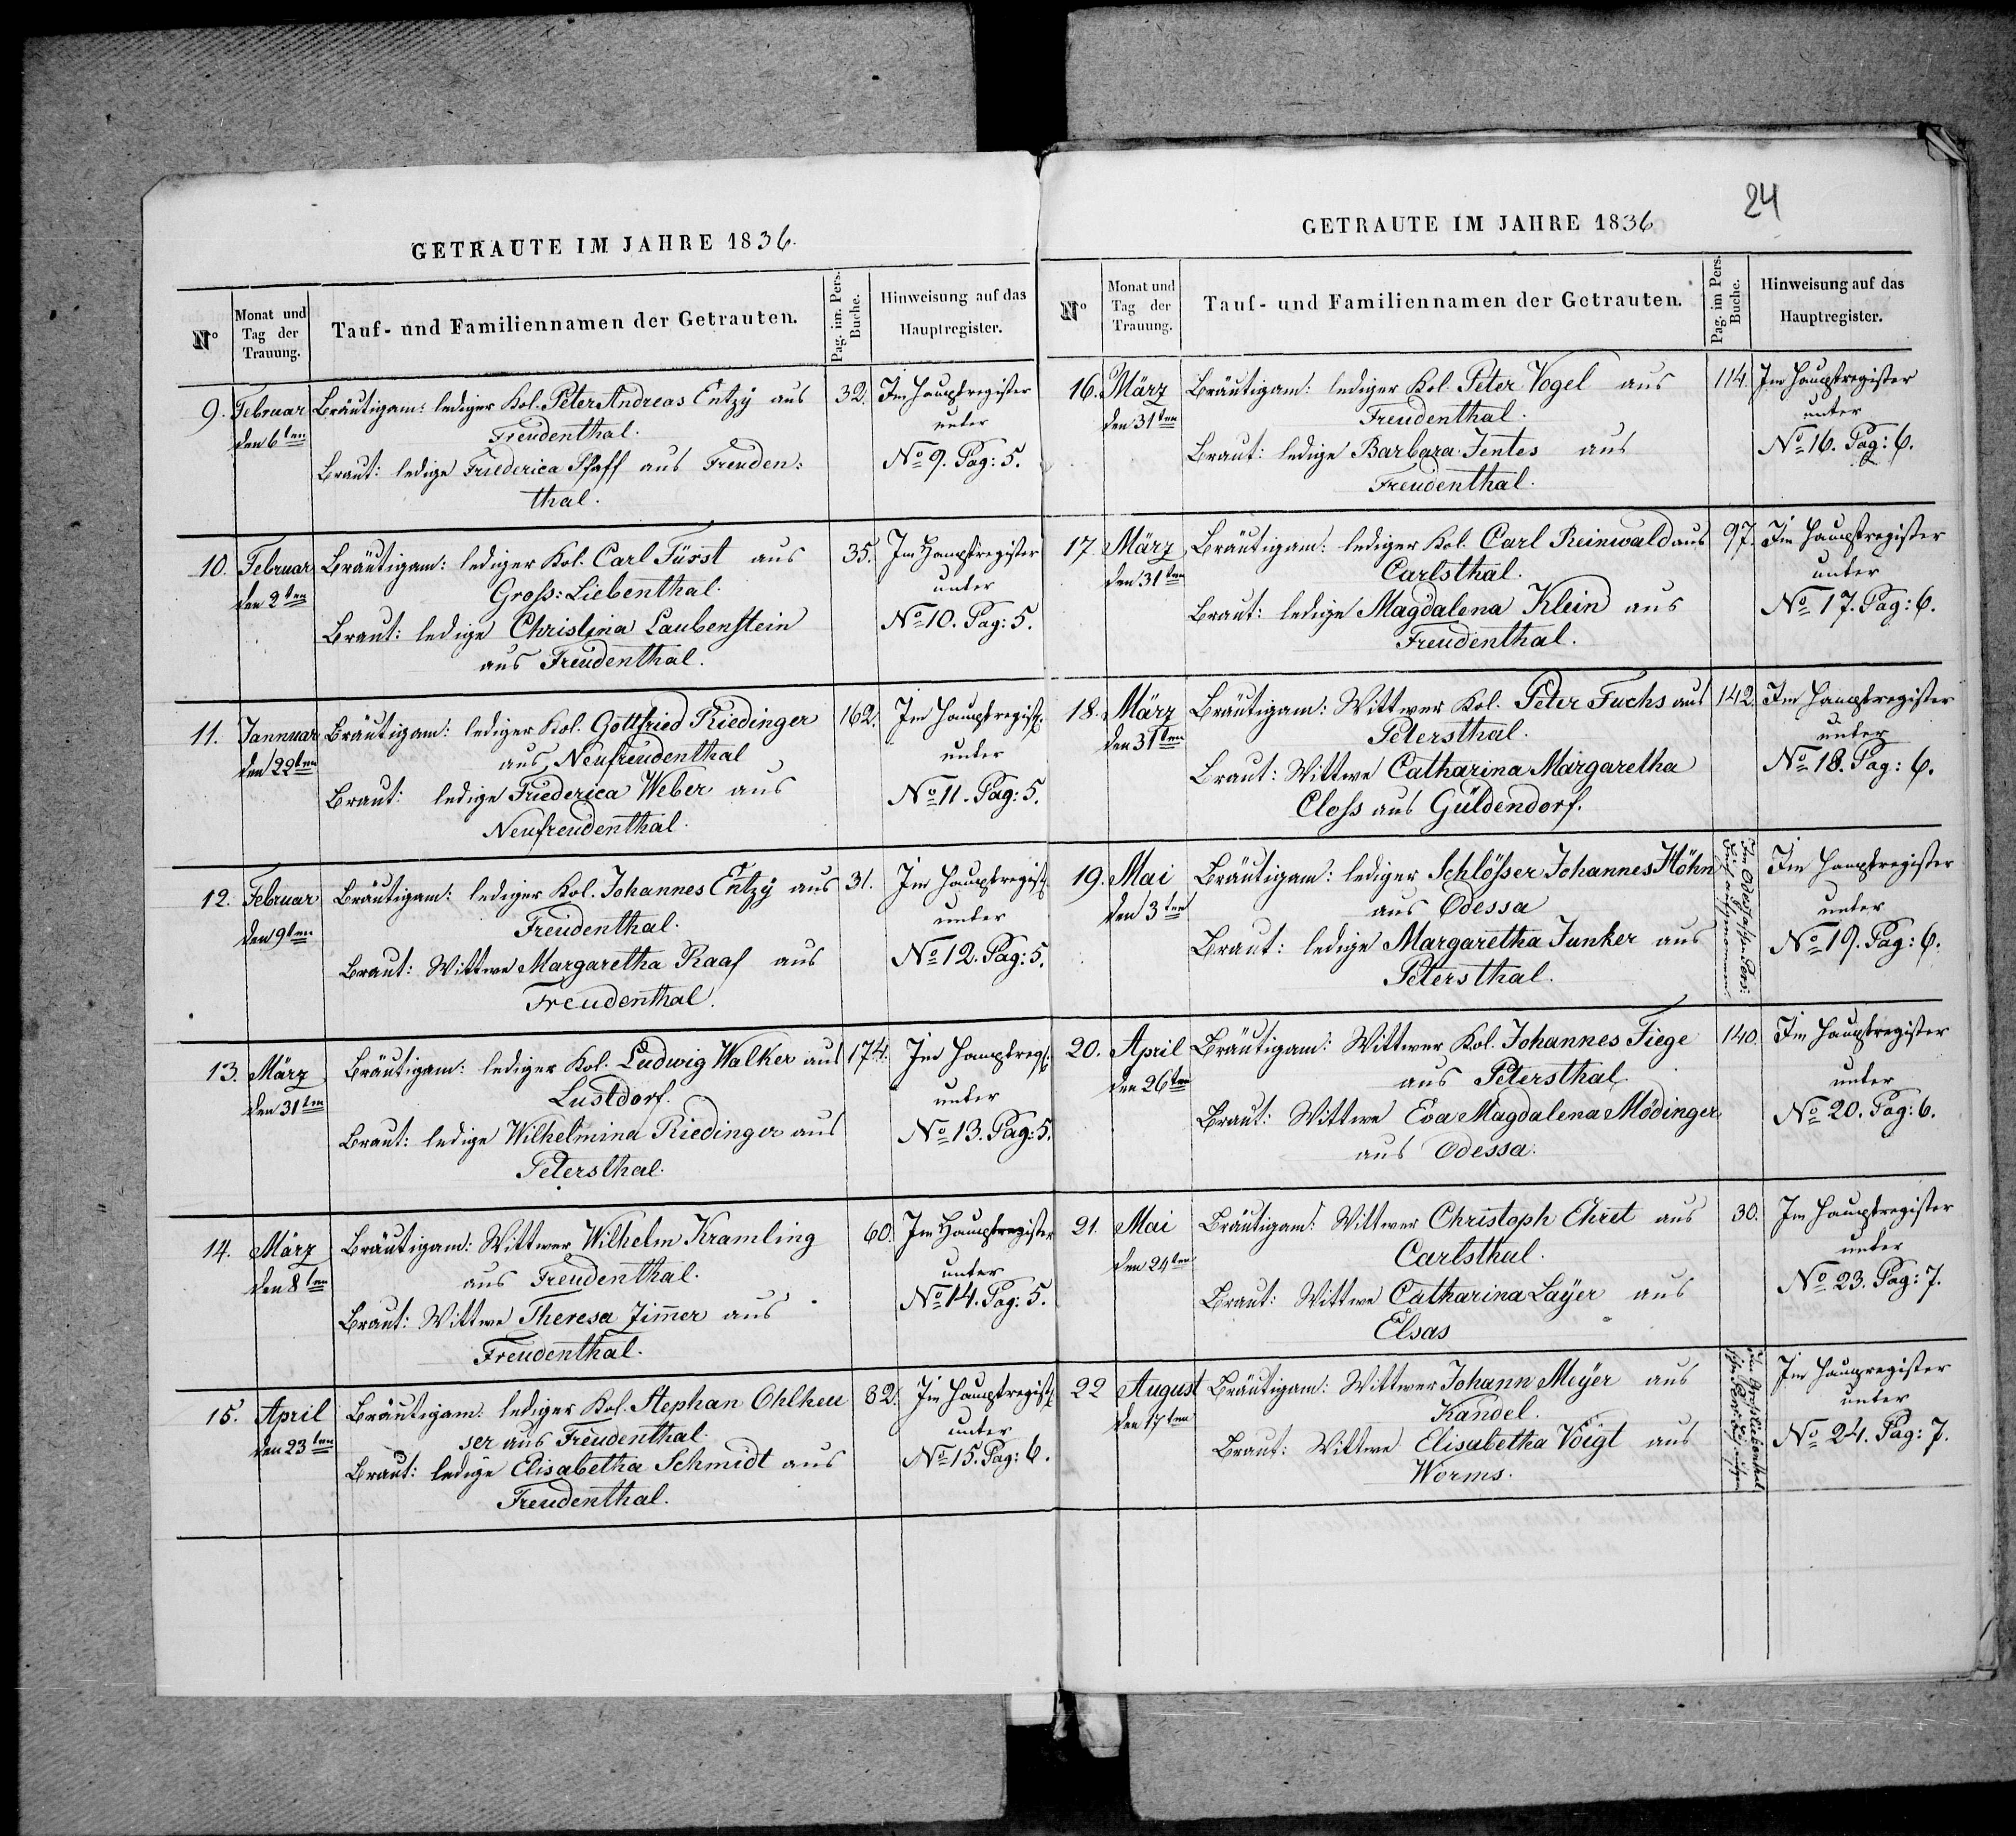 GETRAUTE IM JAHRE 1836.
N°
Monat und
Tag der
Trauung.
Tauf- und Familiennamen der Getrauten.
Pag. im. Pers.
Buche.
Hinweisung auf das
Hauptregister.
9. Februar Bräutigam: lediger Kol. Peter Andreas Entzÿ aus 32. Im Hauptregister
den 6ten Freudenthal. unter
Braut: ledige Friederica Pfaff aus Freuden: No 9. Pag: 5.
thal.
10. Februar Bräutigam: lediger Kol. Carl Fürst aus 35. Im Hauptregister
den 2ten Gross: Liebenthal. unter
Braut: ledige Christina Laubenstein No 10. Pag: 5.
aus Freudenthal.
11. Jannuar Bräutigam: lediger Kol. Gottfried Riedinger 162. Im Hauptregist.
den 22ten aus Neufreudenthal unter
Braut: ledige Friederica Weber aus No 11. Pag: 5.
Neufreudenthal.
12. Februar Bräutigam: lediger Kol. Johannes Entzÿ aus 31. Im Hauptregist.
den 9ten Freudenthal. unter
Braut: Wittwe Margaretha Raaf aus No 12. Pag: 5.
Freudenthal.
13. März Bräutigam: lediger Kol. Ludwig Walker aus 174. Im Hauptreg.
den 31ten Lustdorf. unter
Braut: ledige Wilhelmina Riedinger aus No 13. Pag: 5.
Petersthal.
14. März Bräutigam: Wittwer Wilhelm Kramling 60. Im Hauptregister
den 8ten aus Freudenthal. unter
Braut: Wittwe Theresa Zim̄er aus No 14. Pag: 5.
Freudenthal.
15. April Bräutigam: lediger Kol. Stephan Ohlheu 82. Im Hauptregist.
den 23ten ser aus Freudenthal. unter
Braut: ledige Elisabetha Schmidt aus No 15. Pag: 6.
Freudenthal.
24
GETRAUTE IM JAHRE 1836
N°
Monat und
Tag der
Trauung.
Tauf- und Familiennamen der Getrauten.
Pag. im Pers.
Buche.
Hinweisung auf das
Hauptregister.
16. März Bräutigam: lediger Kol. Peter Vogel aus 114. Im Hauptregister
den 31ten Freudenthal. unter
Braut: ledige Barbara Jentes aus No 16. Pag: 6.
Freudenthal.
17. März Bräutigam: lediger Kol. Carl Reinwald aus 97. Im Hauptregister
den 31ten Carlsthal. unter
Braut: ledige Magdalena Klein aus No 17. Pag: 6.
Freudenthal.
18. März Bräutigam: Wittwer Kol. Peter Fuchs aus 142. Im Hauptregister
den 31ten Petersthal. unter
Braut: Wittwe Catharina Margaretha No 18. Pag: 6.
Closs aus Güldendorf.
19. Mai Bräutigam: lediger Schlösser Johannes Höhn Im Hauptregister
den 3ten aus Odessa unter
Braut: ledige Margaretha Junker aus No 19. Pag: 6.
Petersthal.
20. April Bräutigam: Wittwer Kol. Johannes Fiege 140. Im Hauptregister
den 26ten aus Petersthal. unter
Braut: Wittwe Eva Magdalena Mödinger No 20. Pag: 6.
aus Odessa.
21. Mai Bräutigam: Wittwer Christoph Ehret aus 30. Im Hauptregister
den 24ten Carlsthal. unter
Braut: Wittwe Catharina Laÿer aus No 23. Pag: 7.
Elsas
22 August Bräutigam: Wittwer Johann Meÿer aus Im Haupregister
den 17ten Kandel. unter
Braut: Wittwe Elisabetha Voigt aus No 24. Pag: 7.
Worms.